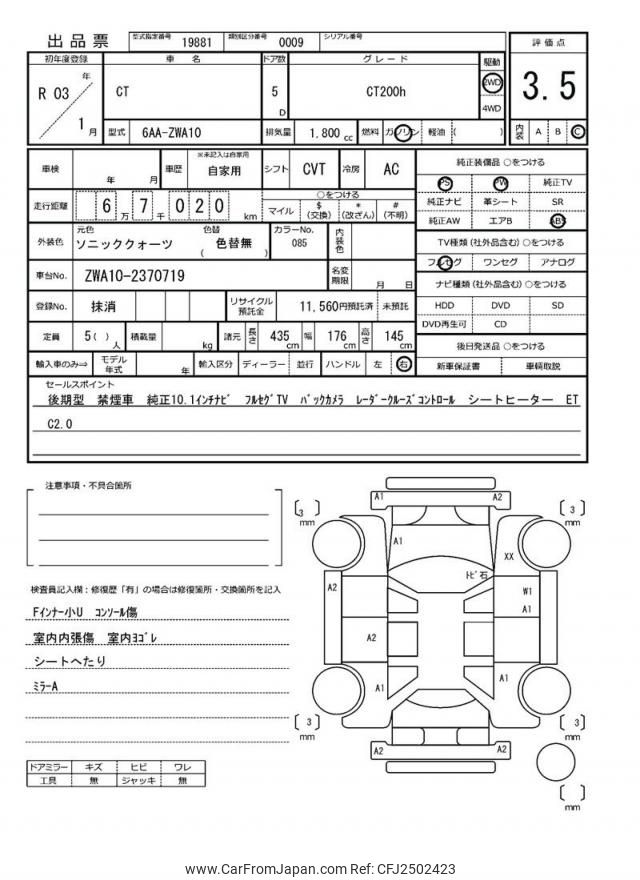 出品票
型式指定番号 19881 類別区分番号 0009 シリアル番号
初年度登録 車名 ドア数 グレード 駆動 評価点
R 03 年 1 月
CT 5 D CT200h 2WD 4WD
3.5
型式 6AA-ZWA10 排気量 1.800 cc 燃料 ガソリン 軽油 ( )
内装 A B C
車検 年 月 車歴 ※未記入は自家用 自家用 シフト CVT 冷房 AC
走行距離 6 万 7 千 0 2 0 km
○をつける
マイル $(交換) *(改ざん) #(不明)
外装色 元色 ソニッククォーツ 色替 ( 色替無 ) カラーNo. 085 内装色
車台No. ZWA10-2370719 名変期限 月 日
登録No. 抹消 リサイクル預託金 11,560円預託済 未預託
定員 5( )人 積載量 kg 諸元 長さ 435 cm 幅 176 cm 高さ 145 cm
輸入車のみ⇒ モデル年式 年 輸入区分 ディーラー 並行 ハンドル 左 右
純正装備品 ○をつける
PS PW 純正TV
純正ナビ 革シート SR
純正AW エアB ABS
TV種類(社外品含む)○をつける
フルセグ ワンセグ アナログ
ナビ種類(社外品含む)○をつける
HDD DVD SD
DVD再生可 CD
後日発送品 ○をつける
新車保証書 車輌取説
セールスポイント
後期型 禁煙車 純正10.1インチナビ フルセグTV バックカメラ レーダークルーズコントロール シートヒーター ET
C2.0
注意事項・不具合箇所
検査員記入欄:修復歴「有」の場合は修復箇所・交換箇所を記入
Fインナー小U コンソール傷
室内内張傷 室内ヨゴレ
シートへたり
ミラーA
ドアミラー キズ ヒビ ワレ
工具 無 ジャッキ 無
A1 A2
[ 3 ] mm [ 3 ] mm
A1 XX
トビ石
A2 W1
A1
A2
A1 A1
[ 3 ] mm [ 3 ] mm
A2 A2
[ ] mm
www.CarFromJapan.com Ref: CFJ2502423